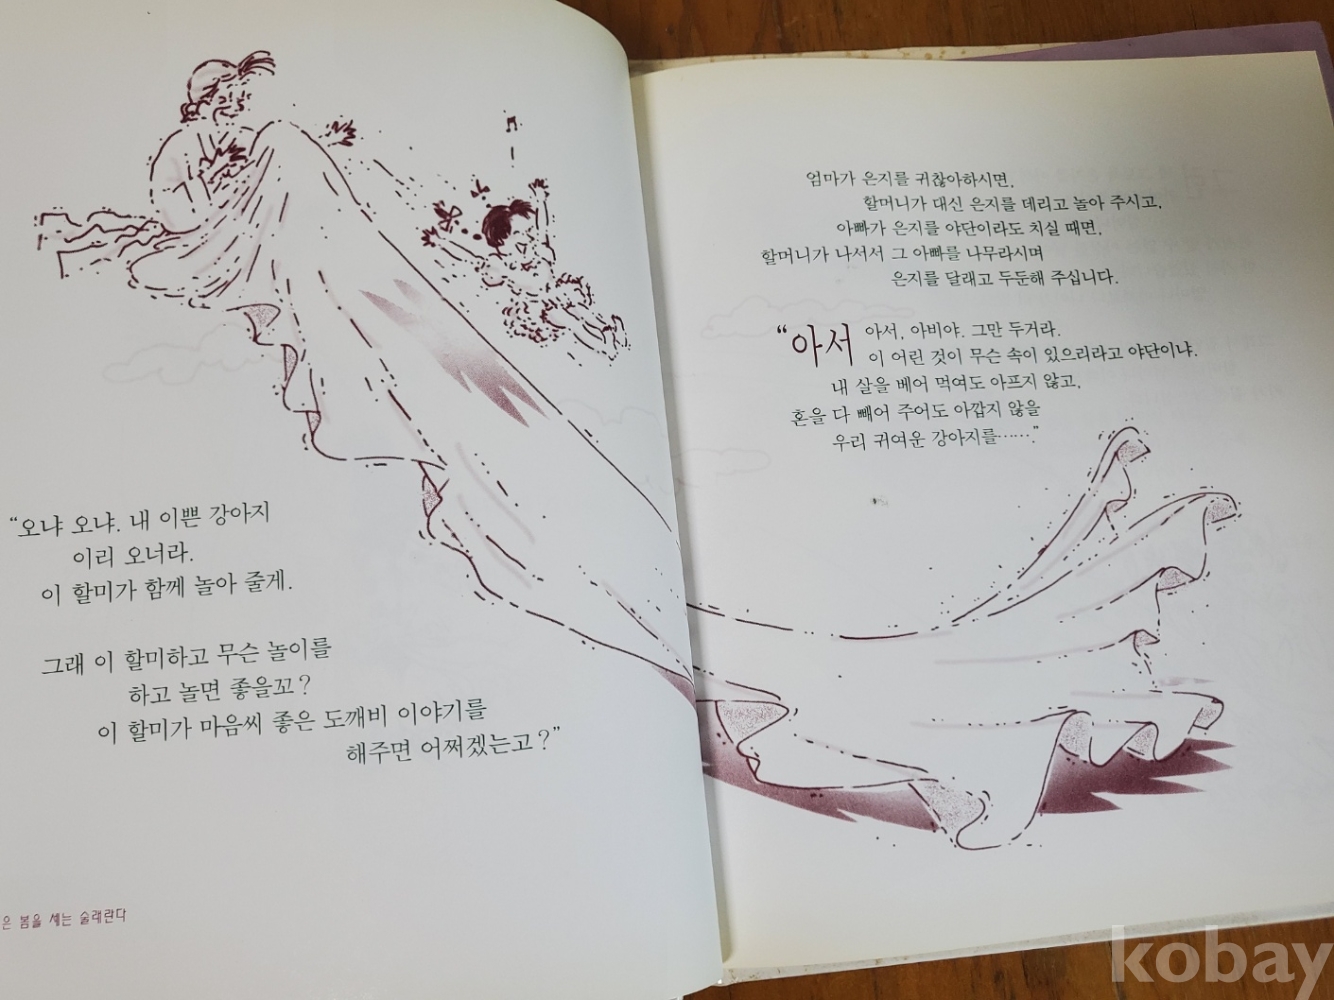 “오냐 오냐. 내 이쁜 강아지
이리 오너라.
이 할미가 함께 놀아 줄게.
그래 이 할미하고 무슨 놀이를
하고 놀면 좋을꼬?
이 할미가 마음씨 좋은 도깨비 이야기를
해주면 어쩌겠는고?”
은 봄을 세는 술래란다
엄마가 은지를 귀찮아하시면,
할머니가 대신 은지를 데리고 놀아 주시고,
아빠가 은지를 야단이라도 치실 때면,
할머니가 나서서 그 아빠를 나무라시며
은지를 달래고 두둔해 주십니다.
“아서 아서, 아비야. 그만 두거라.
이 어린 것이 무슨 속이 있으리라고 야단이냐.
내 살을 베어 먹여도 아프지 않고,
혼을 다 빼어 주어도 아깝지 않을
우리 귀여운 강아지를…….”
kobay